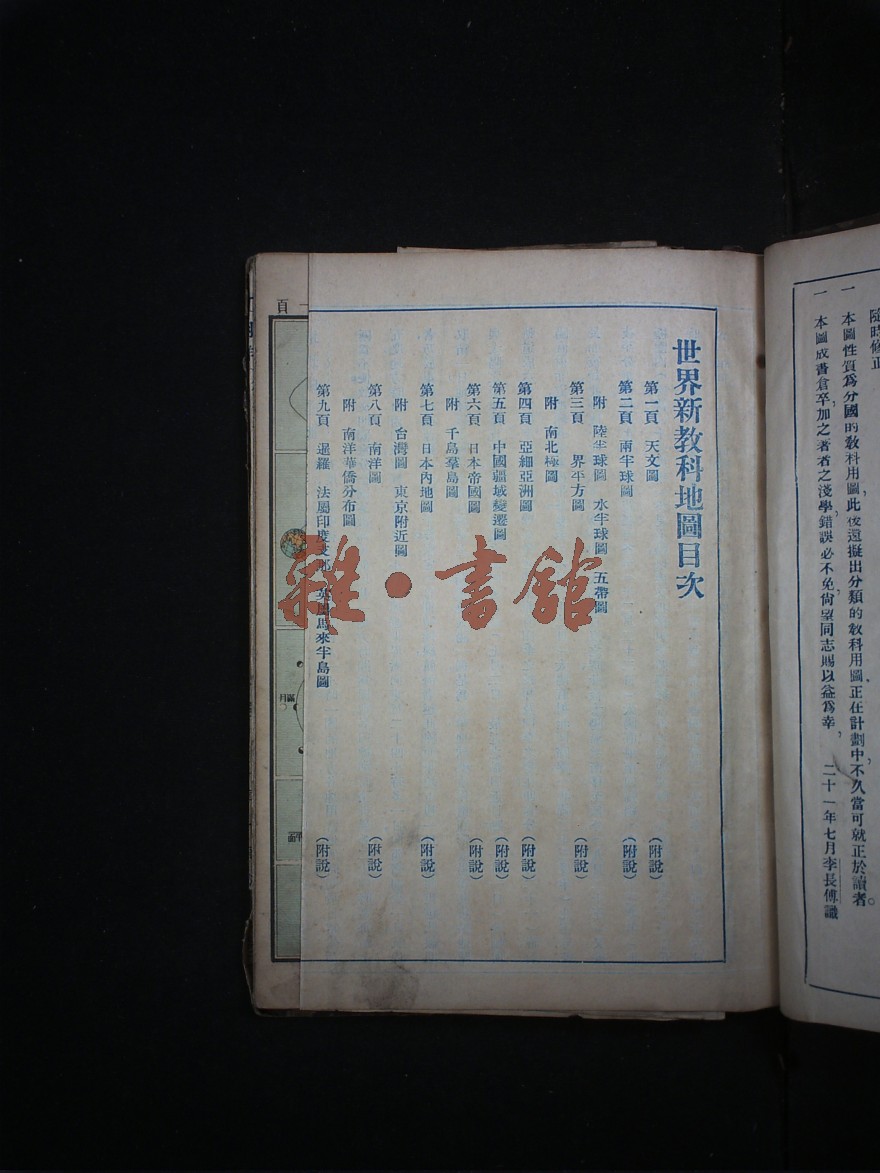 隨時修正
一　本圖性質爲分國的教科用圖，此後還擬出分類的教科用圖，正在計劃中，不久當可就正於讀者。
一　本圖成書倉卒，加之著者之淺學，錯誤必不免，尙望同志賜以益爲幸，　二十一年七月李長傅識
世界新教科地圖目次
第一頁　天文圖　（附說）
第二頁　兩半球圖　（附說）
附　陸半球圖　水半球圖　五帶圖
第三頁　界平方圖　（附說）
附　南北極圖
第四頁　亞細亞洲圖　（附說）
第五頁　中國疆域變遷圖　（附說）
第六頁　日本帝國圖　（附說）
附　千島羣島圖
第七頁　日本內地圖　（附說）
附　台灣圖　東京附近圖
第八頁　南洋圖　（附說）
附　南洋華僑分布圖
第九頁　暹羅　法屬印度支　馬來半島圖　（附說）
一頁
滿月
雜·書館